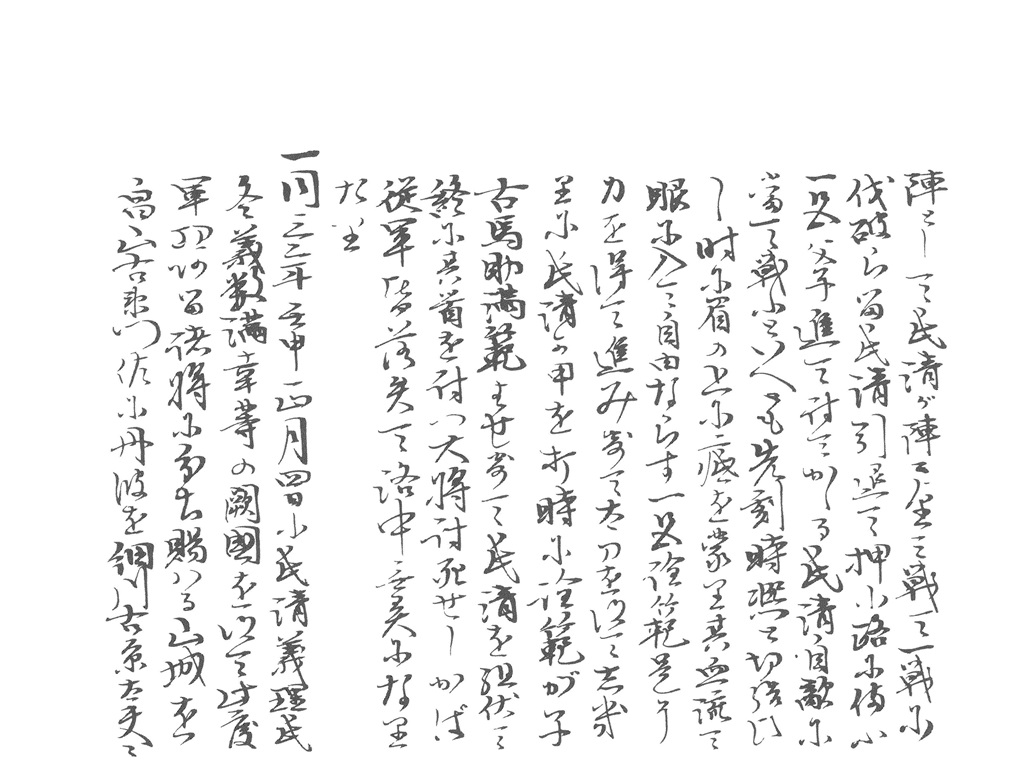 陣として氏清が陣に屋して戦て一戦に
伐破らる留氏清引退て押小路に倚ふ
一色父子進て討てかゝる氏清自敵に
當て戦ふといへとも先刻時熙と切結ひ
し時に眉の上に疵を蒙里其血流て
眼に入て自由ならす一色詮範是より
力を得て進み寄て太刀を以て志者
里に氏清の甲を打時に詮範が子
右馬助満範はせ寄て氏清を組伏て
終に其首を討つ大将討死せしかば
従軍皆落失て洛中無異になり
たり
一同三年壬申正月四日に氏清義理氏
冬義数満幸等の闕國を以て此度
軍功の諸将に分ち賜はる山城を
畠山右衛門佐に丹波を細川右京大夫に